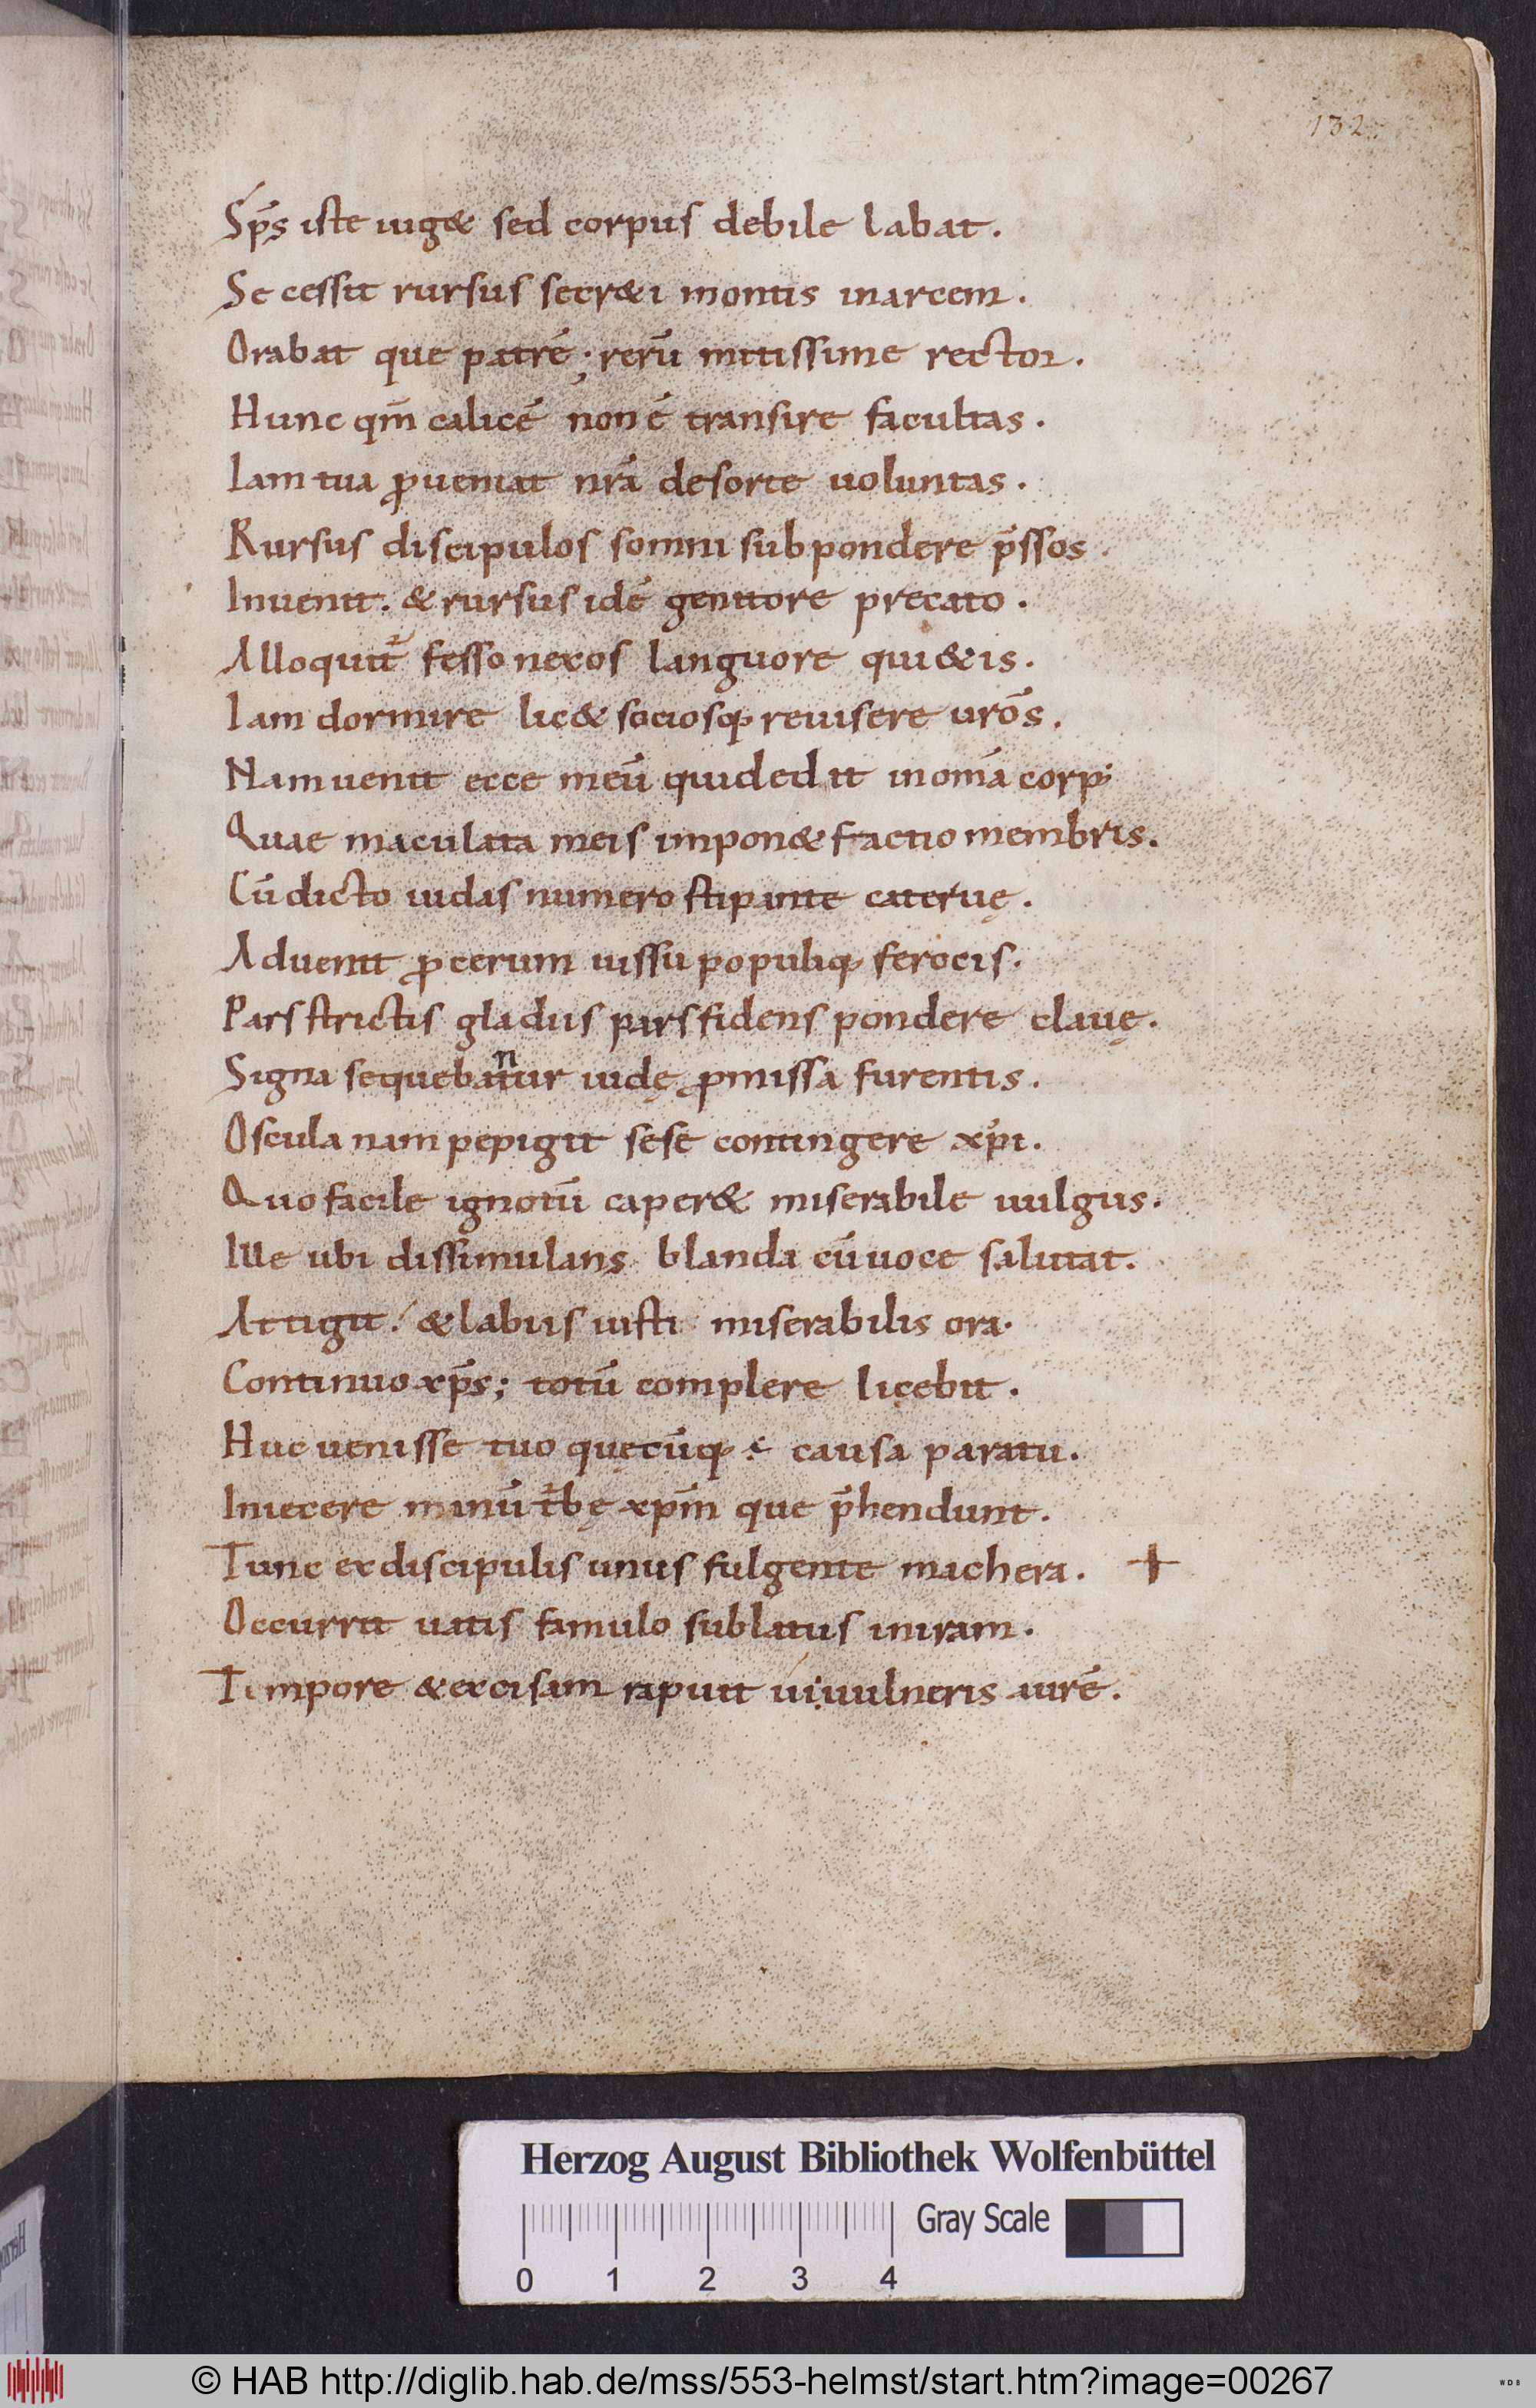 132.
Sp̄s iste uig& sed corpus debile labat.
Secessit rursus secr&i montis inarcem.
Orabat que patrē; rerū mitissime rector.
Hunc qm̄ calicē non ē transire facultas.
Iam tua ꝓueniat nrā desorte uoluntas.
Rursus discipulos somni sub pondere p̄ssos.
Inuenit. & rursus idē genitore precato.
Alloquit᷑ fesso nexos languore qui&is.
Iam dormire lic& sociosq; reuisere urōs.
Nam uenit ecce meū quidedit inomīa corp;
Quae maculata meis inpon& factio membris.
Cū dicto iudas numero stipante cateruę.
Aduenit ꝓcerum iussu populiq; ferocis.
Pars strictis gladiis pars fidens pondere clauę.
Signa sequebantur iudę ꝓmissa furentis.
Oscula nam pepigit sese contingere xp̄i.
Quo facile ignotū caper& miserabile uulgus.
Ille ubi dissimulans blanda cū uoce salutat.
Attigit. & labiis iusti miserabilis ora.
Continuo xp̄s; totū complere licebit.
Huc uenisse tuo quęcūq; ē causa paratu.
Iniecere manū t᷑bę xp̄m que p̄hendunt.
Tunc exdiscipulis unus fulgente machera. +
Occurrit uatis famulo sublatus iniram.
Tempore & excisam rapuit ui uulneris aurē.
Herzog August Bibliothek Wolfenbüttel
Gray Scale
0 1 2 3 4
© HAB http://diglib.hab.de/mss/553-helmst/start.htm?image=00267
WDB